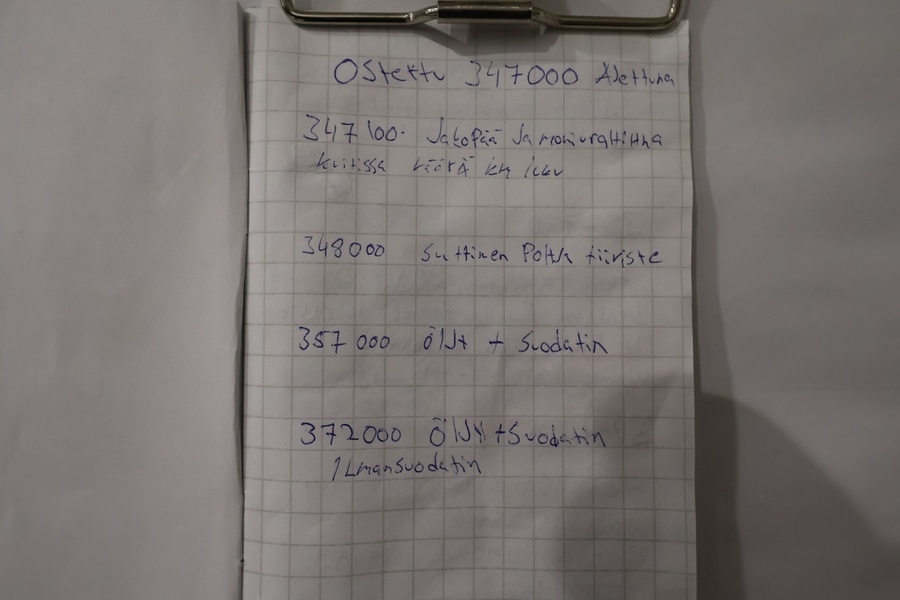 Ostettu 347000 Ajettuna
347100. Jakopää Ja moniurahihna
kuitissa väärä km luku
348000 Suttimen Pohja tiiviste
357000 ÖlJyt + Suodatin
372000 ÖlJyt +Suodatin
ILmansuodatin